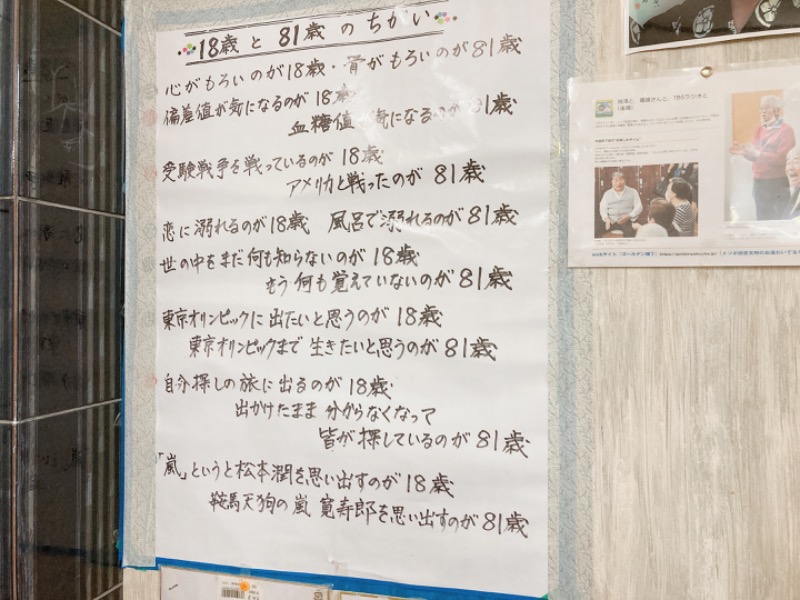 18歳と81歳のちがい
心がもろいのが18歳・骨がもろいのが81歳
偏差値が気になるのが18歳
血糖値が気になるのが81歳
受験戦争を戦っているのが18歳
アメリカと戦ったのが81歳
恋に溺れるのが18歳 風呂で溺れるのが81歳
世の中をまだ何も知らないのが18歳
もう何も覚えていないのが81歳
東京オリンピックに出たいと思うのが18歳
東京オリンピックまで生きたいと思うのが81歳
自分探しの旅に出るのが18歳
出かけたまま分からなくなって
皆が探しているのが81歳
「嵐」というと松本潤を思い出すのが18歳
鞍馬天狗の嵐寛寿郎を思い出すのが81歳